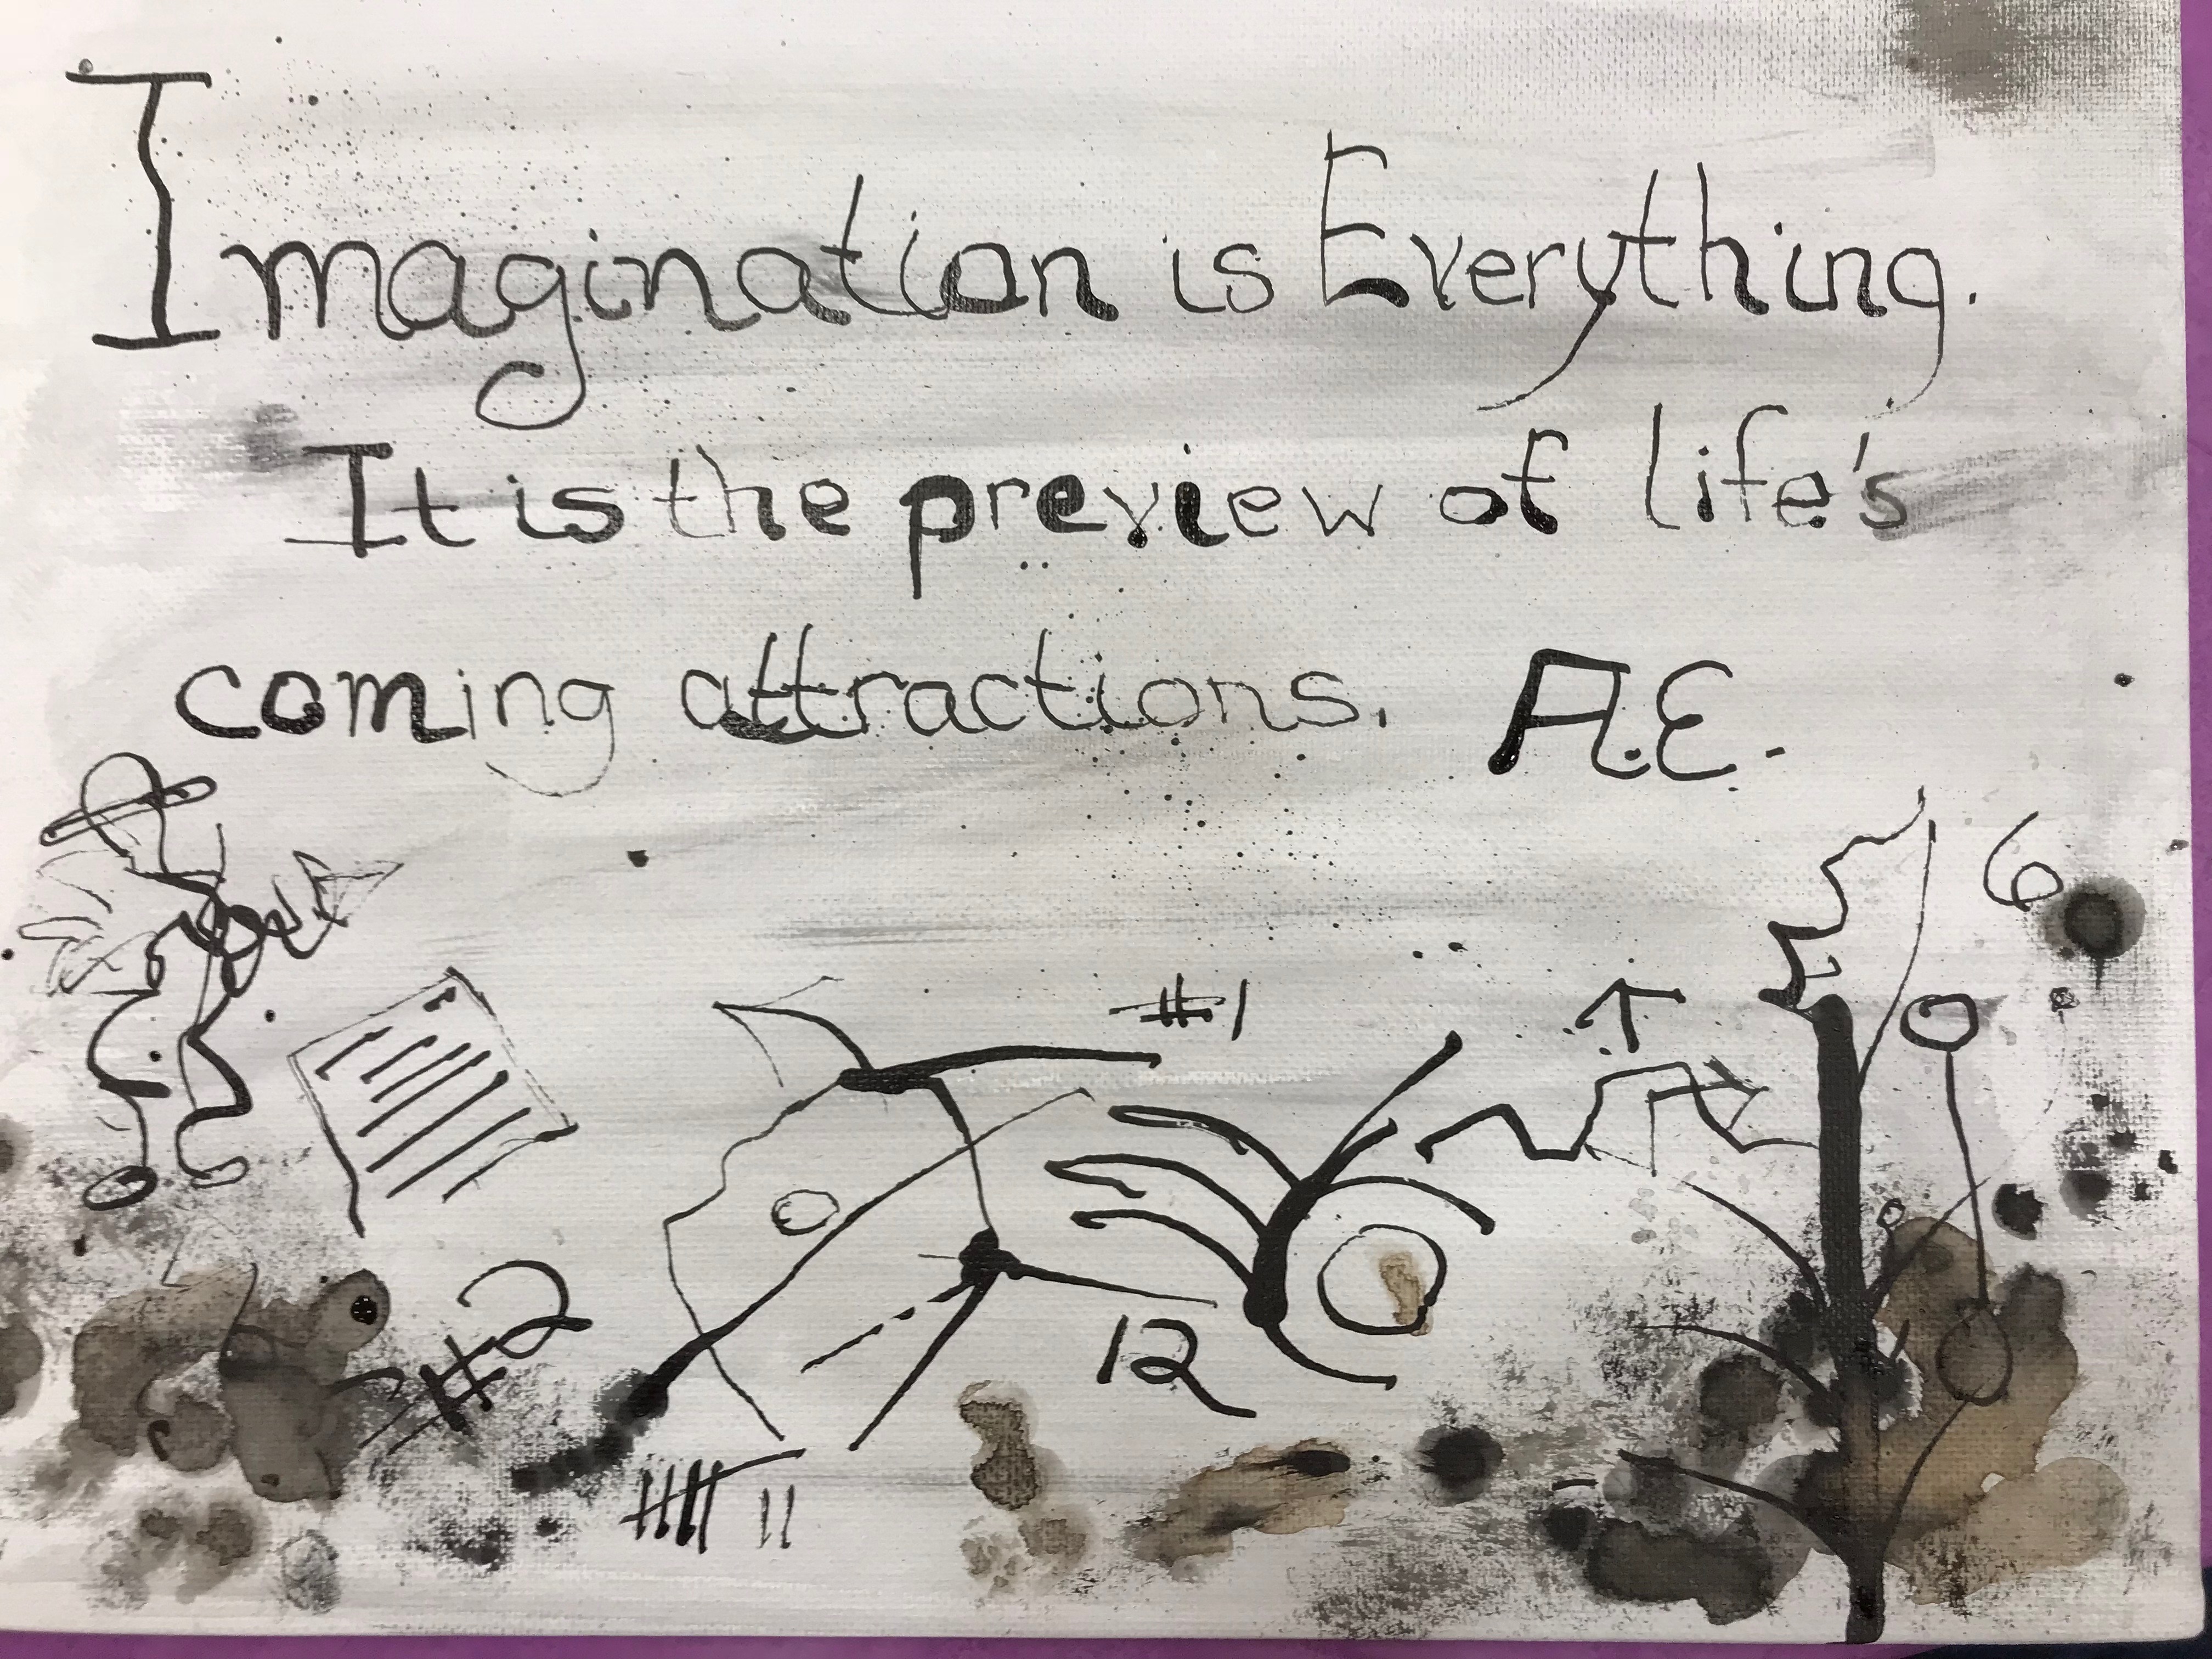 Imagination is Everything.
It is the preview of life's
coming attractions. A.E.
6
#1
#2
12